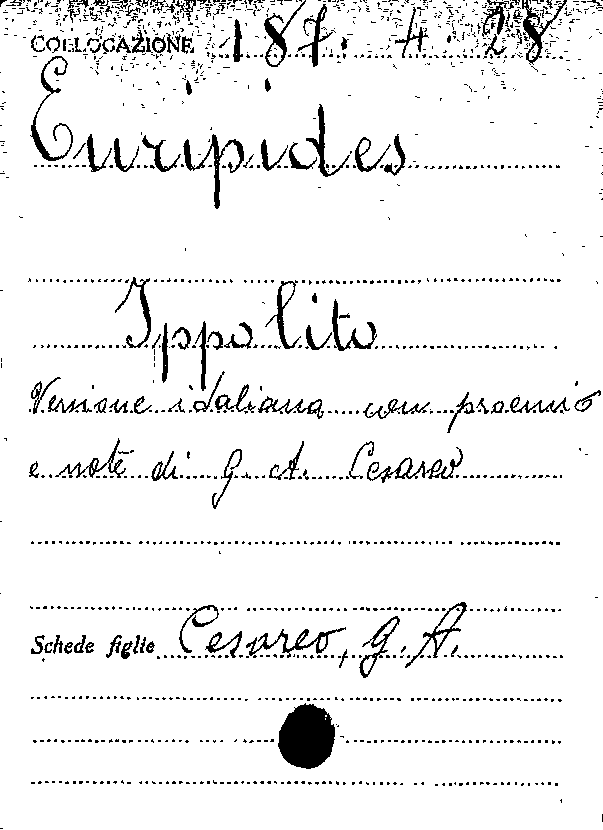 COLLOCAZIONE 187. 4. 28
Euripides
Ippolito
Versione italiana con proemio
e note di G. A. Cesareo
Schede figlie Cesareo, G. A.